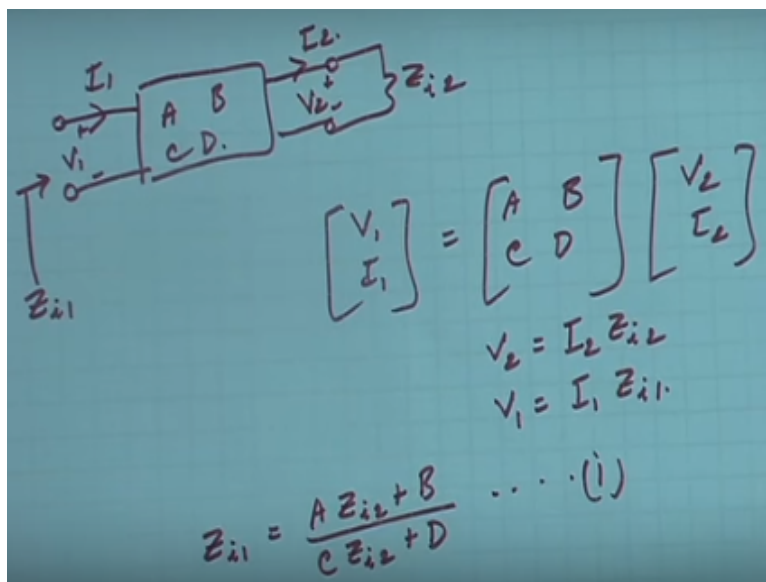 I1
I2.
A B
C D.
+
V1
-
+
V2
-
Zi2
Zi1
[V1 I1] = [A B C D] [V2 I2]
V2 = I2 Zi2
V1 = I1 Zi1.
Zi1 = A Zi2 + B / C Zi2 + D .....(i)